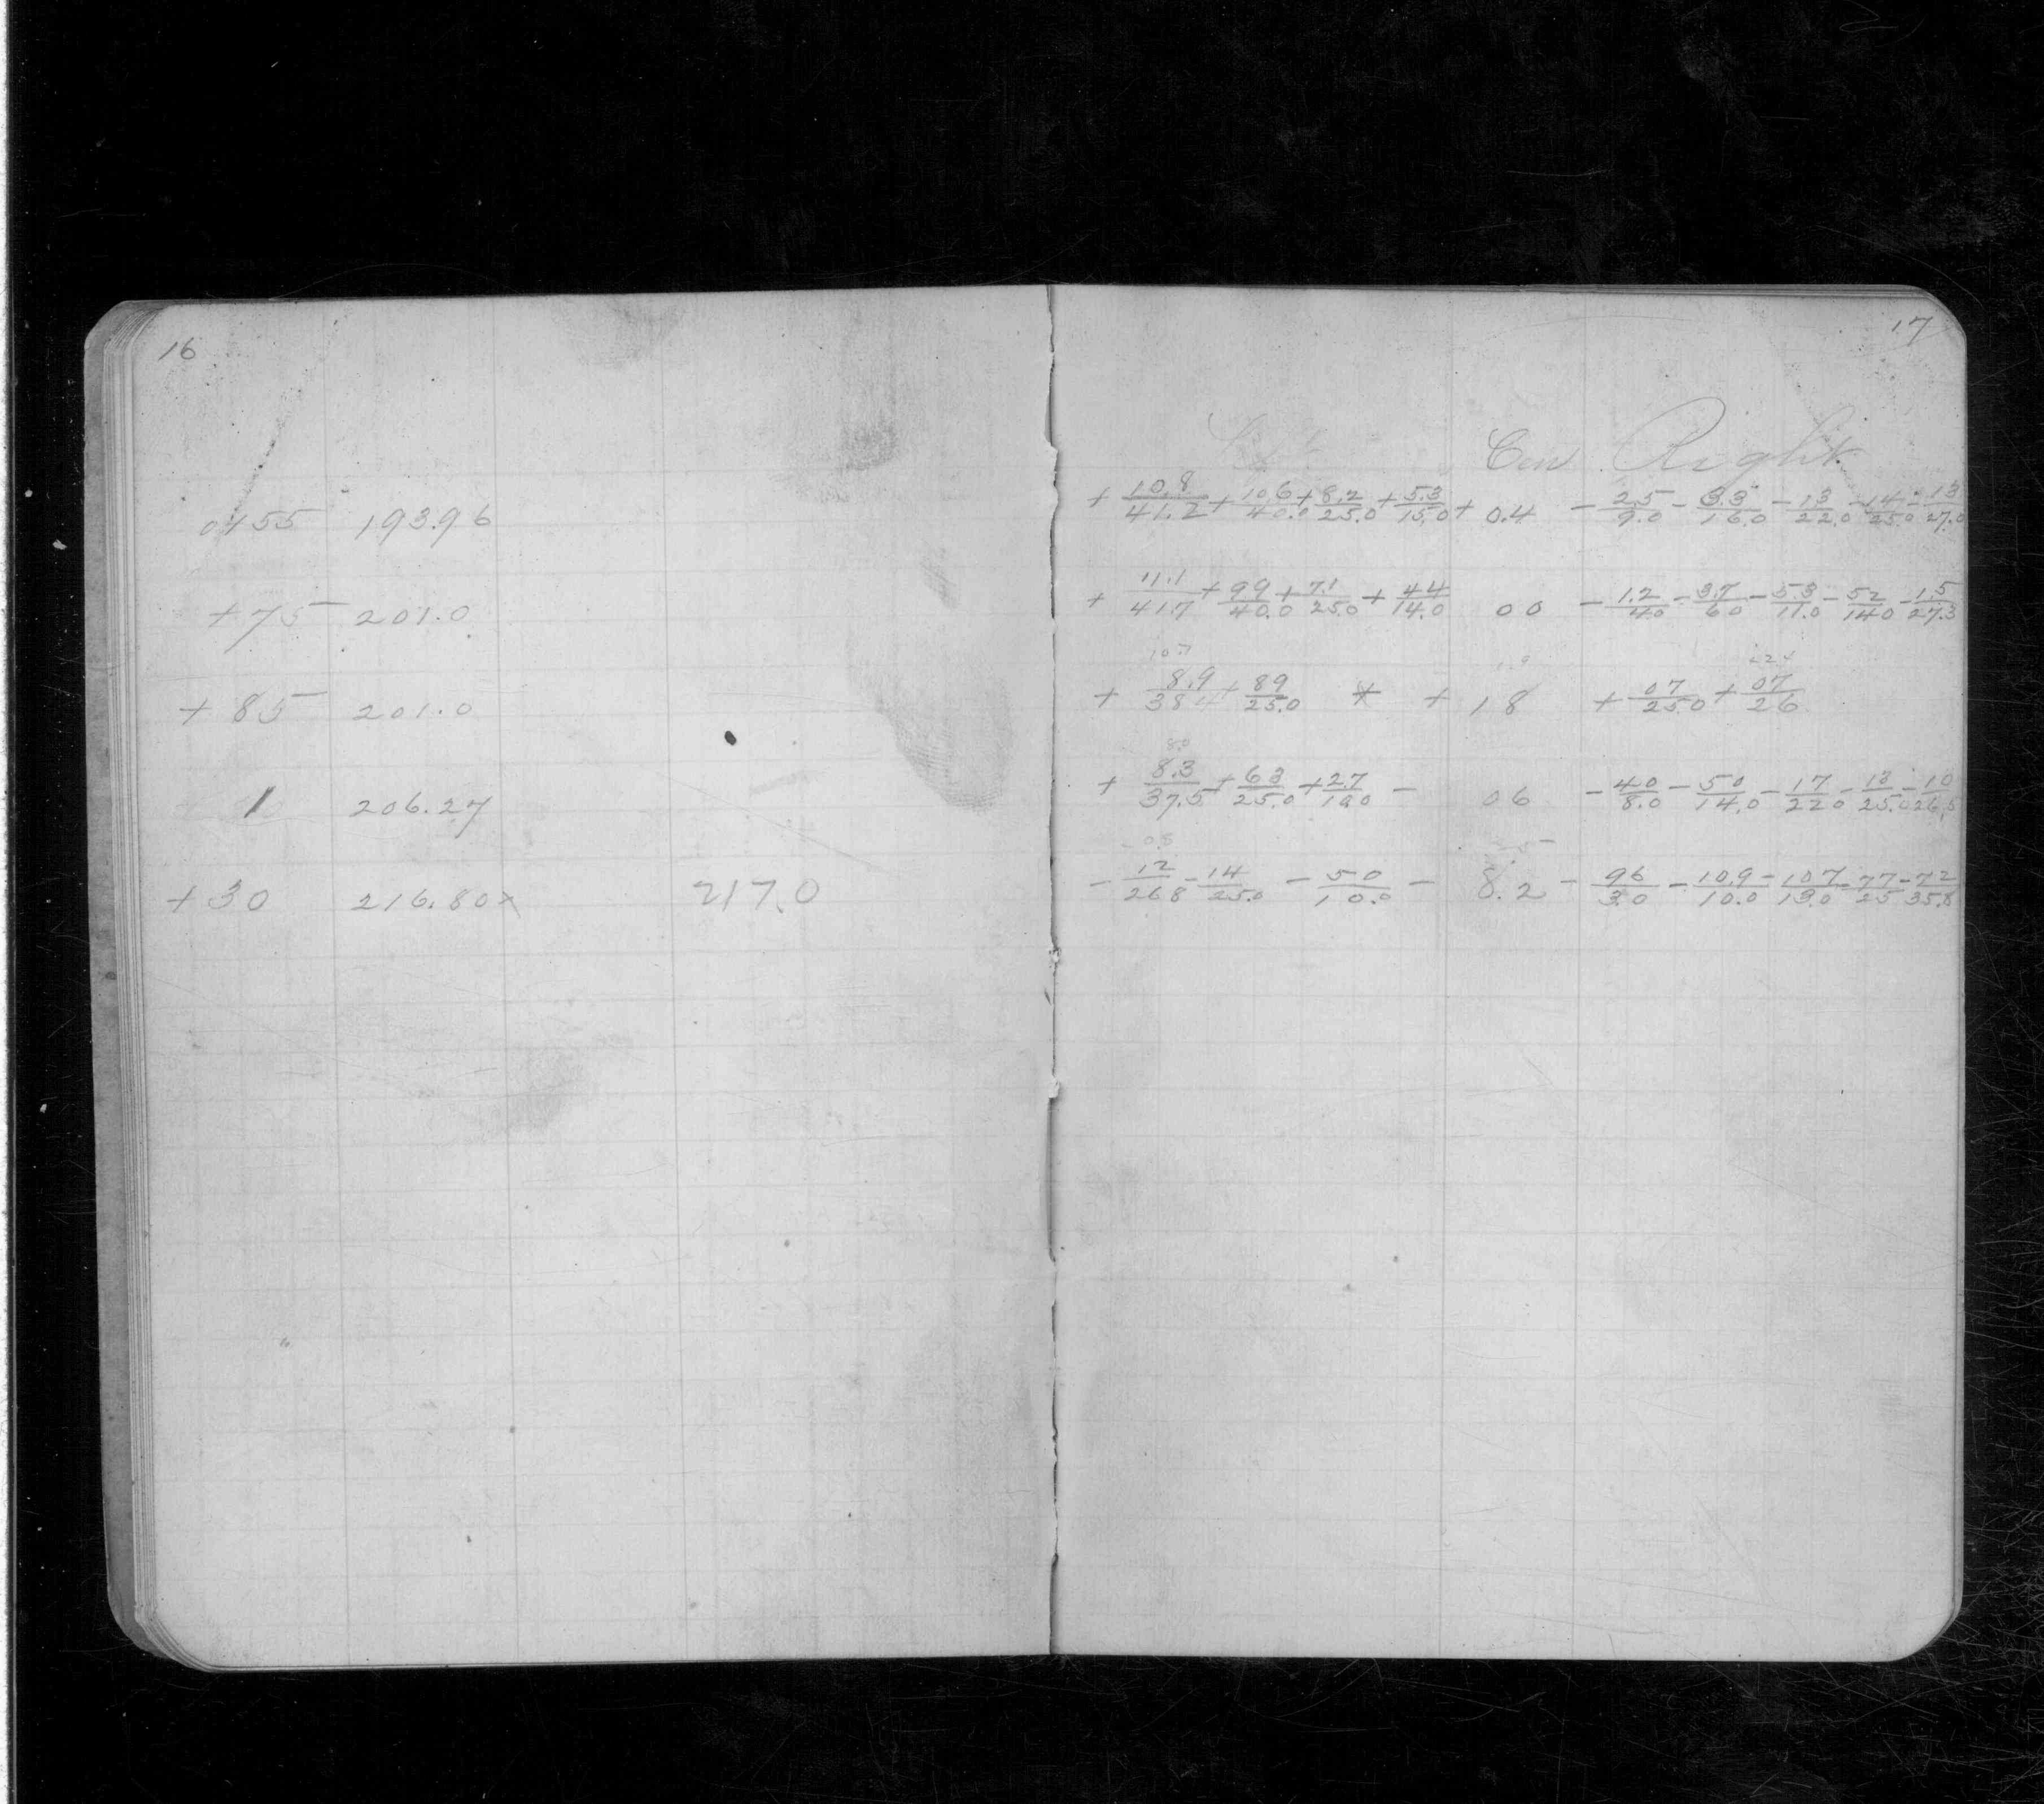 16
0+55 193.96
+75 201.0
+85 201.0
1 206.27
+30 216.80x 217.0
17
Left Cen Right
+ 10.8/41.2 + 10.6/40.0 + 8.2/25.0 + 5.3/15.0 + 0.4 - 25/9.0 - 3.3/16.0 - 13/22.0 - 14/25.0 - 13/27.0
+ 11.1/41.7 + 99/40.0 + 7.1/25.0 + 44/14.0 00 - 1.2/40 - 3.7/60 - 5.3/11.0 - 52/140 - 1.5/27.3
10.7
+ 8.9/384 + 89/25.0 + + 18 + 07/250 + 07/26
8.0
+ 8.3/37.5 + 63/25.0 + 27/100 - 06 - 40/8.0 - 50/14.0 - 17/220 - 13/25.0 - 10/26.5
0.8
- 12/268 - 14/25.0 - 50/10.0 - 8.2 - 96/3.0 - 10.9/10.0 - 107/13.0 - 77/25 - 72/35.8